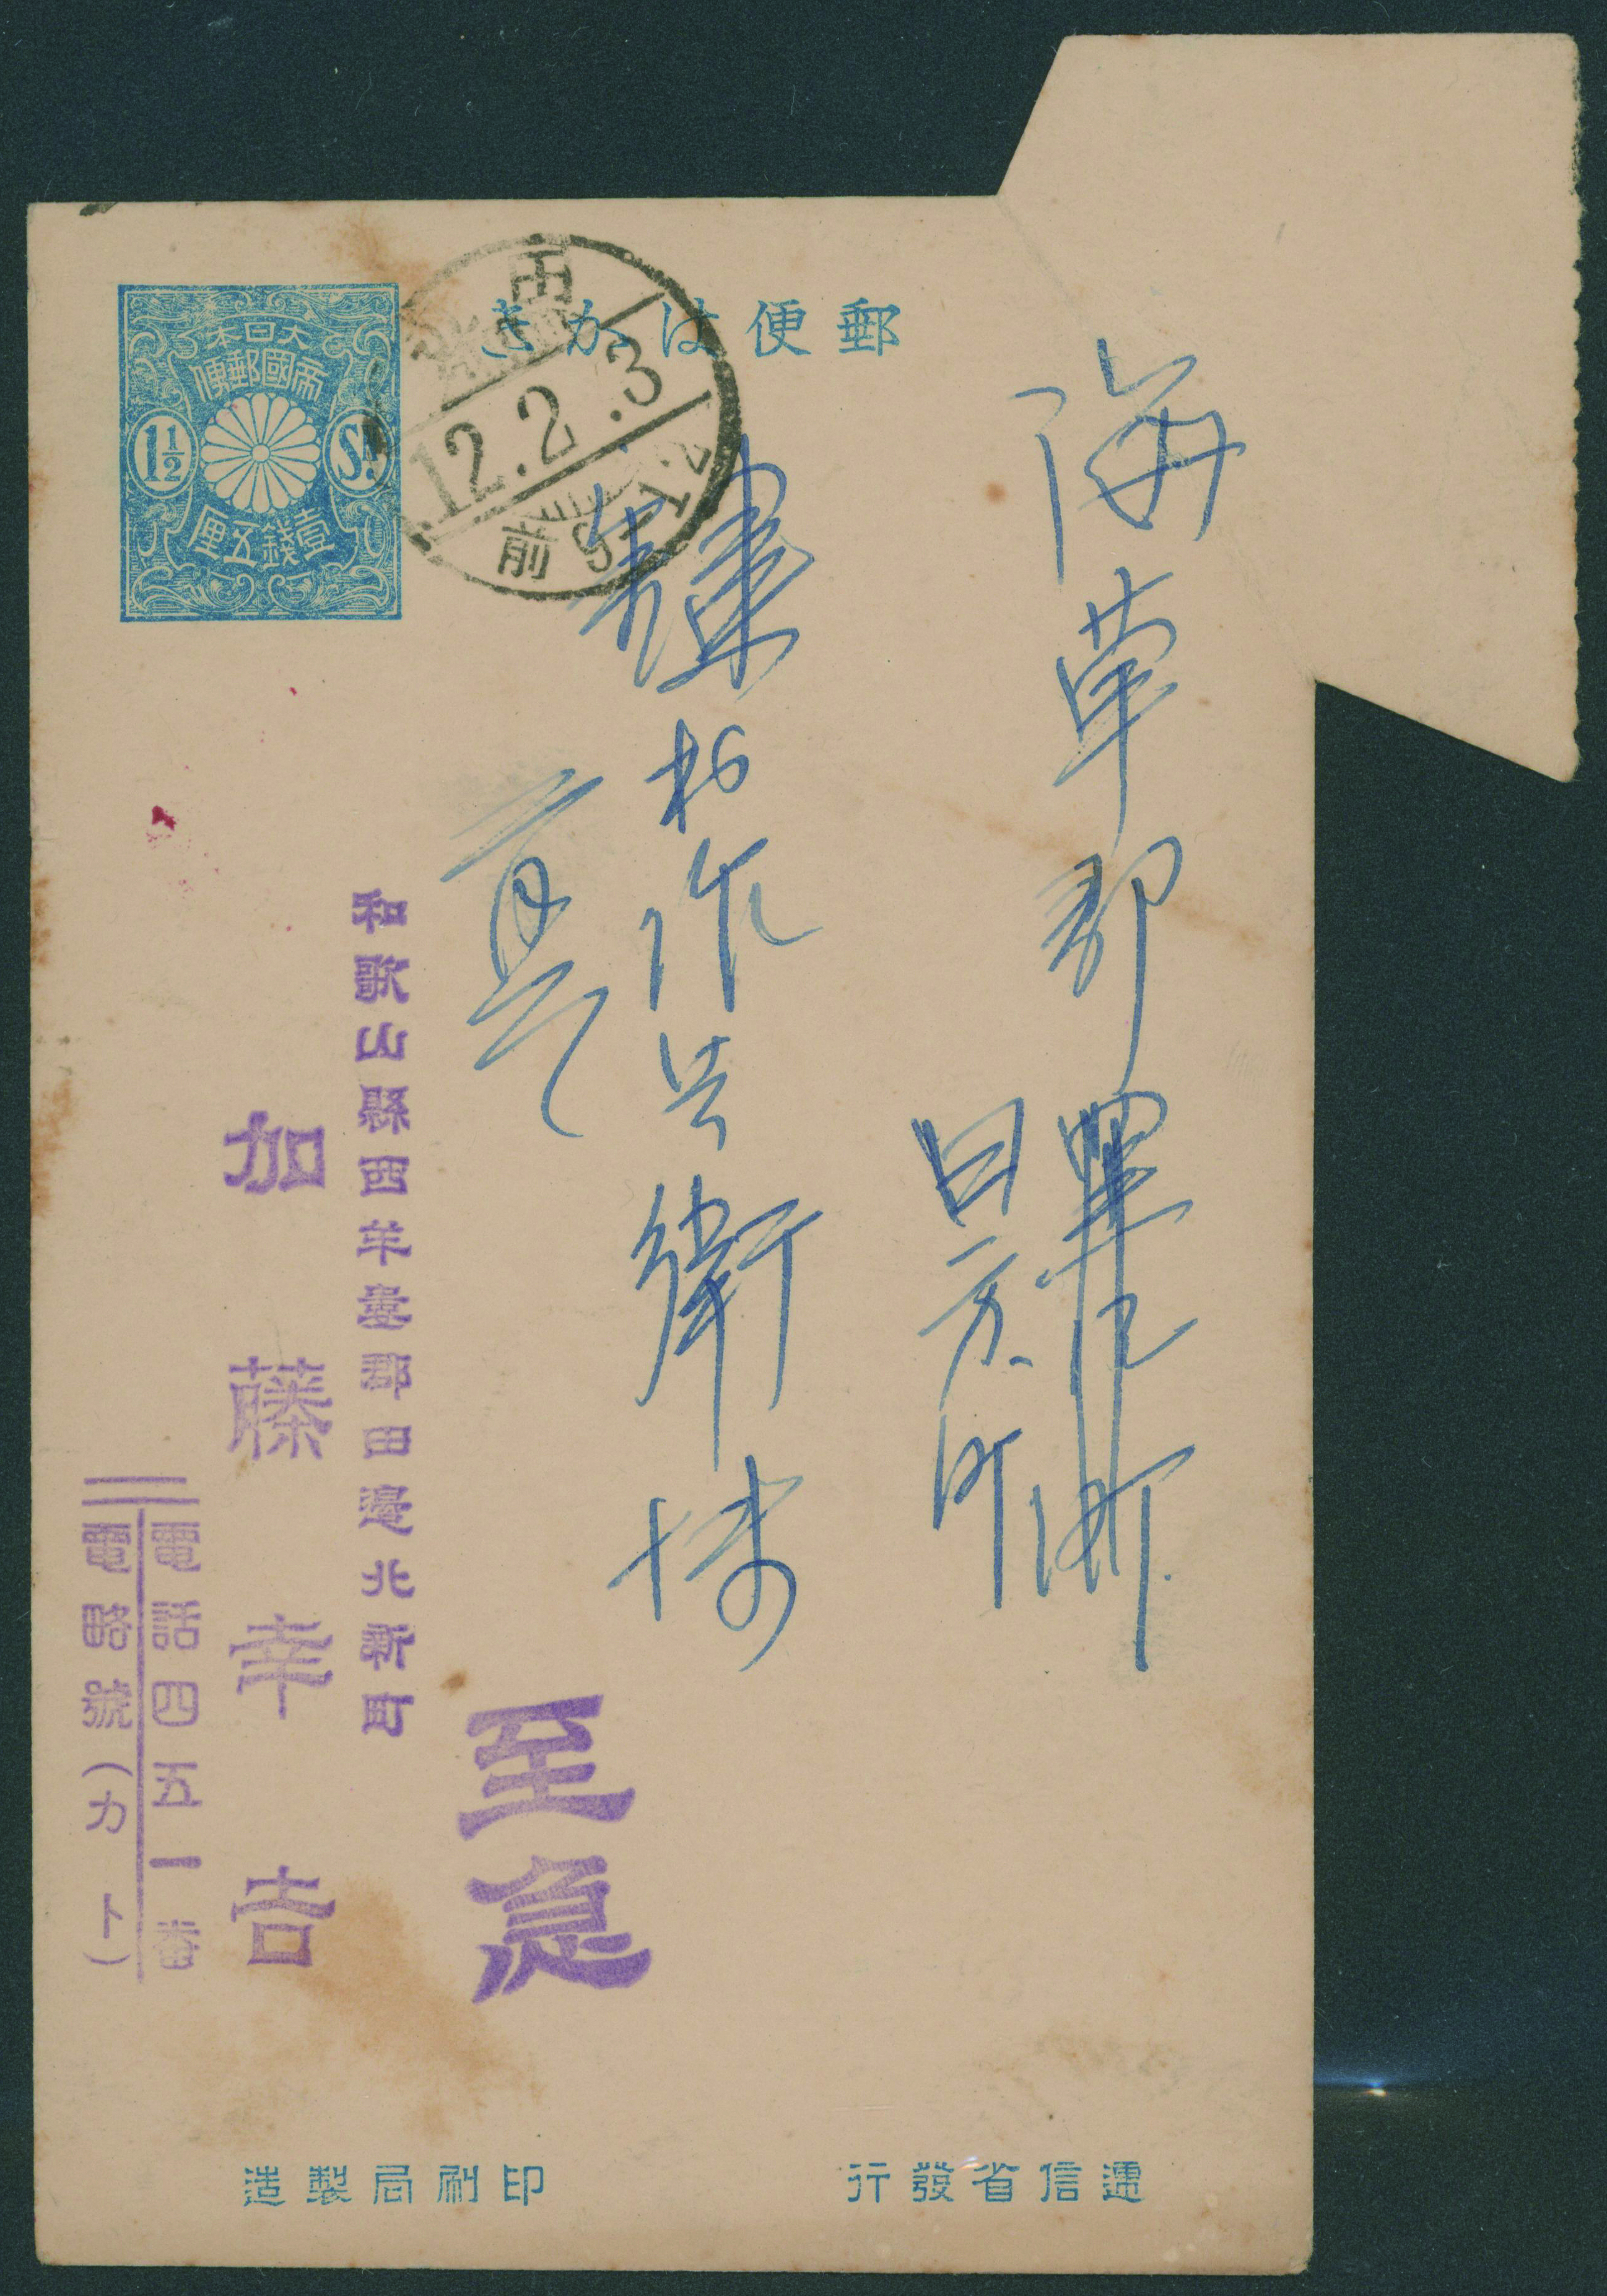 郵便はかき
大日本
帝國郵便
1½
Sn.
壹錢五厘
田
12.2.3
前9-12
海草郡
日方町
作兵衛様
至急
和歌山縣西牟婁郡田邊北新町
加藤幸吉
電話四五一番
電略號(カト)
遞信省發行
印刷局製造